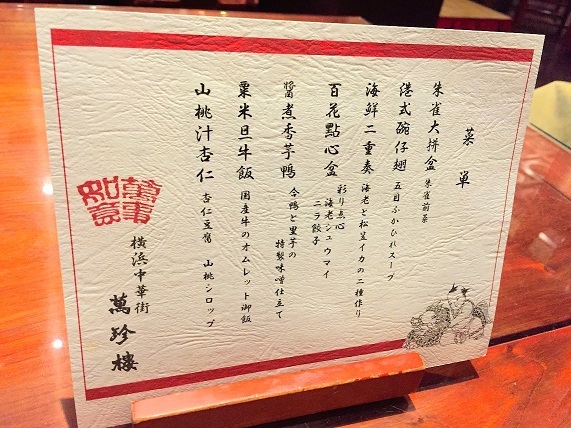 菜単
朱雀大拼盆 朱雀前菜
港式碗仔翅 五目ふかひれスープ
海鮮二重奏 海老と松笠イカの二種作り
百花點心盒 彩り点心
海老シュウマイ
ニラ餃子
醬煮香芋鴨 合鴨と里芋の
特製味噌仕立て
粟米旦牛飯 国産牛のオムレット御飯
山桃汁杏仁 杏仁豆腐 山桃シロップ
萬事如意
横浜中華街
萬珍樓